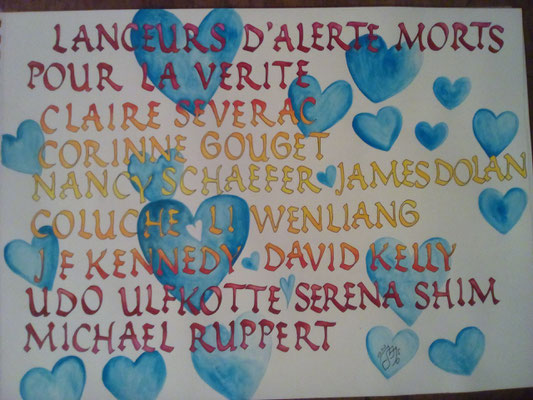 LANCEURS D'ALERTE MORTS
POUR LA VERITE
CLAIRE SEVERAC
CORINNE GOUGET
NANCY SCHAEFER JAMES DOLAN
COLUCHE LI WENLIANG
J F KENNEDY DAVID KELLY
UDO ULFKOTTE SERENA SHIM
MICHAEL RUPPERT